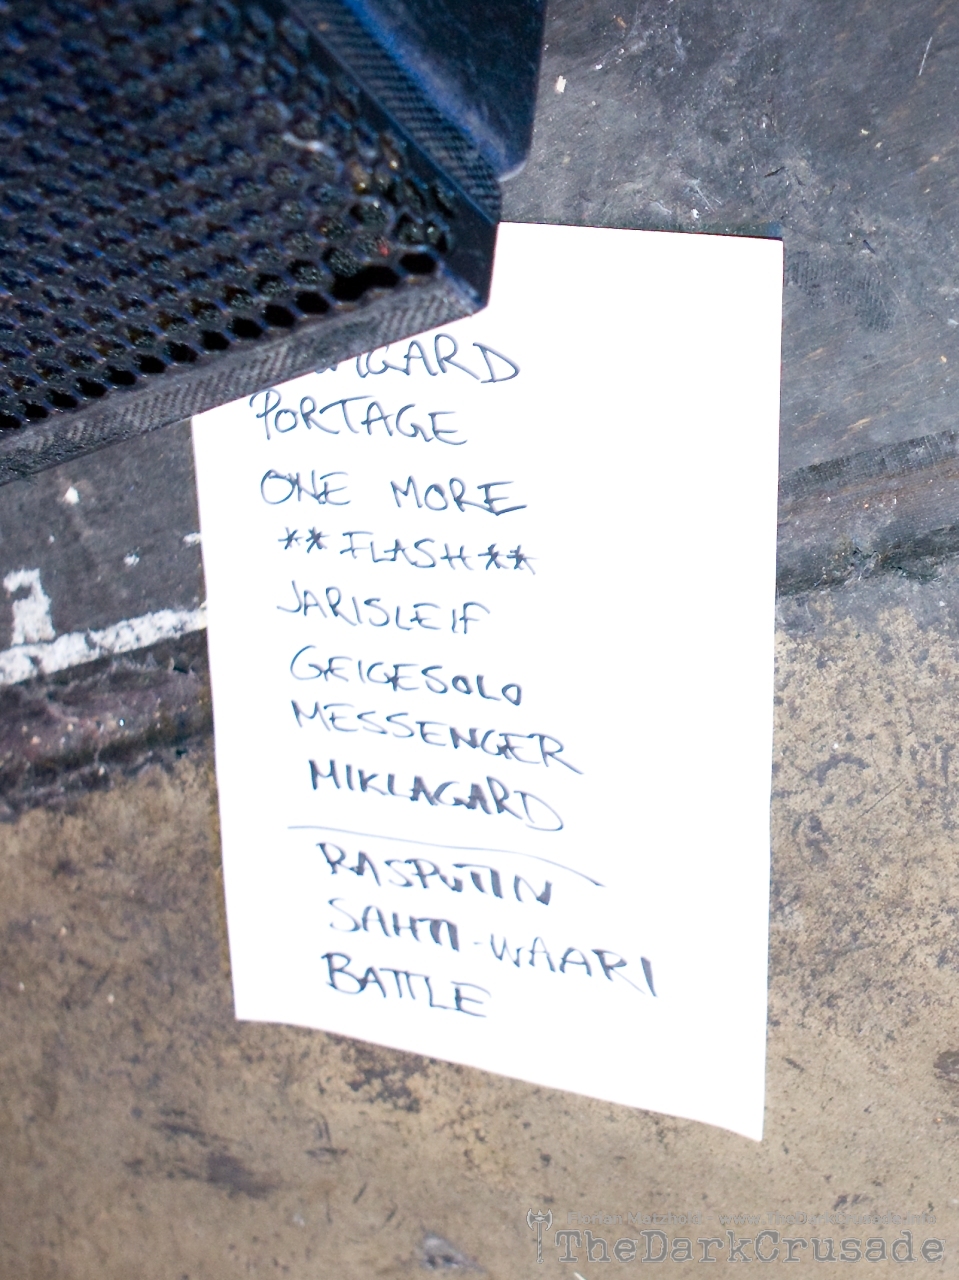 PORTAGE
ONE MORE
**FLASH**
JARISLEIF
GEIGESOLO
MESSENGER
MIKLAGARD
RASPUTIN
SAHTI-WAARI
BATTLE
TheDarkCrusade